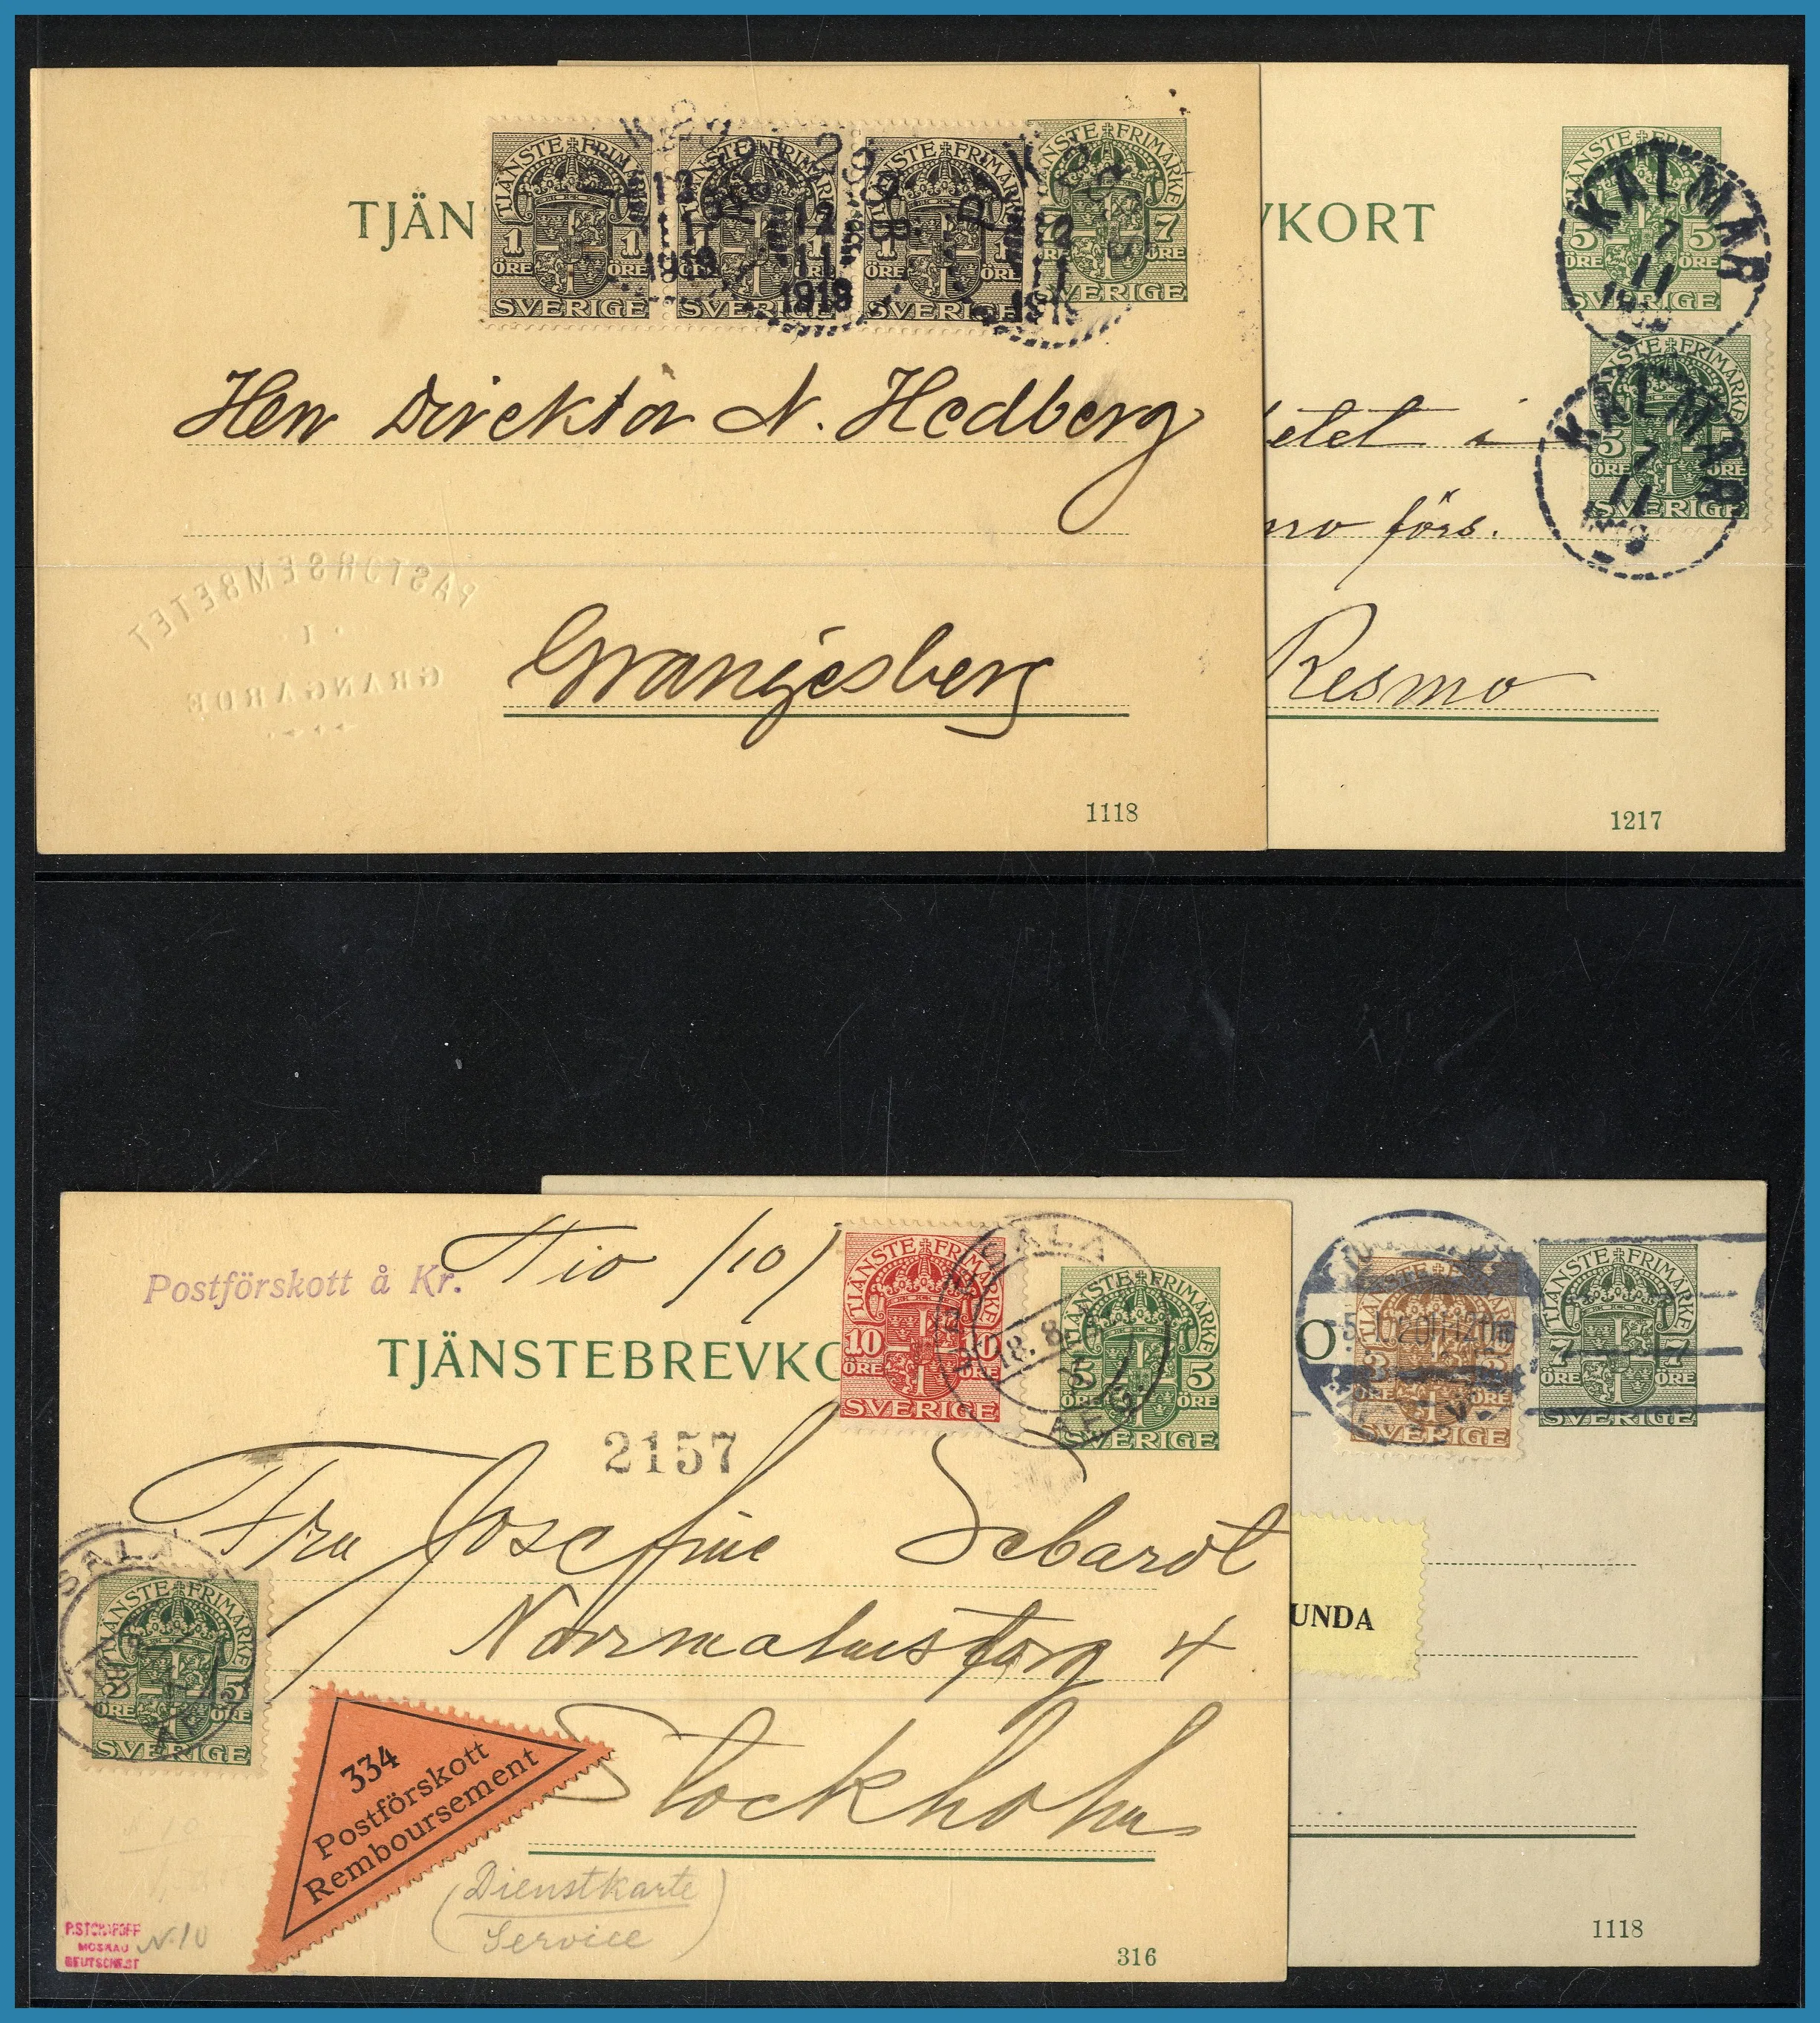 TJÄN
TJÄNSTE FRIMÄRKE
1 ÖRE 1 ÖRE
SVERIGE
TJÄNSTE FRIMÄRKE
1 ÖRE 1 ÖRE
SVERIGE
TJÄNSTE FRIMÄRKE
1 ÖRE 1 ÖRE
SVERIGE
TJÄNSTE FRIMÄRKE
7 ÖRE
SVERIGE
12
11
1919
Herr Direktör N. Hedberg
Grangjesberg
PASTORSEMBETET
I
GRANGÄRDE
1118
VKORT
TJÄNSTE FRIMÄRKE
5 ÖRE 5 ÖRE
SVERIGE
KALMAR
7
11
TJÄNSTE FRIMÄRKE
5 ÖRE 5 ÖRE
SVERIGE
KALMAR
7
11
etet i
mo förs.
Resmo
1217
Postförskott å Kr. Tio /10/
TJÄNSTEBREVKO
TJÄNSTE FRIMÄRKE
10 ÖRE 10 ÖRE
SVERIGE
SALA
18. 8.
TJÄNSTE FRIMÄRKE
5 ÖRE 5 ÖRE
SVERIGE
2157
Fru Josefine Sebardt
Norrmalmstorg 4
Stockholm
SALA
TJÄNSTE FRIMÄRKE
5 ÖRE 5 ÖRE
SVERIGE
334
Postförskott
Remboursement
(Dienstkarte
Service)
MOSKAU
N.10
316
O
TJÄNSTE FRIMÄRKE
3 ÖRE 3 ÖRE
SVERIGE
TJÄNSTE FRIMÄRKE
7 ÖRE 7 ÖRE
SVERIGE
UNDA
1118